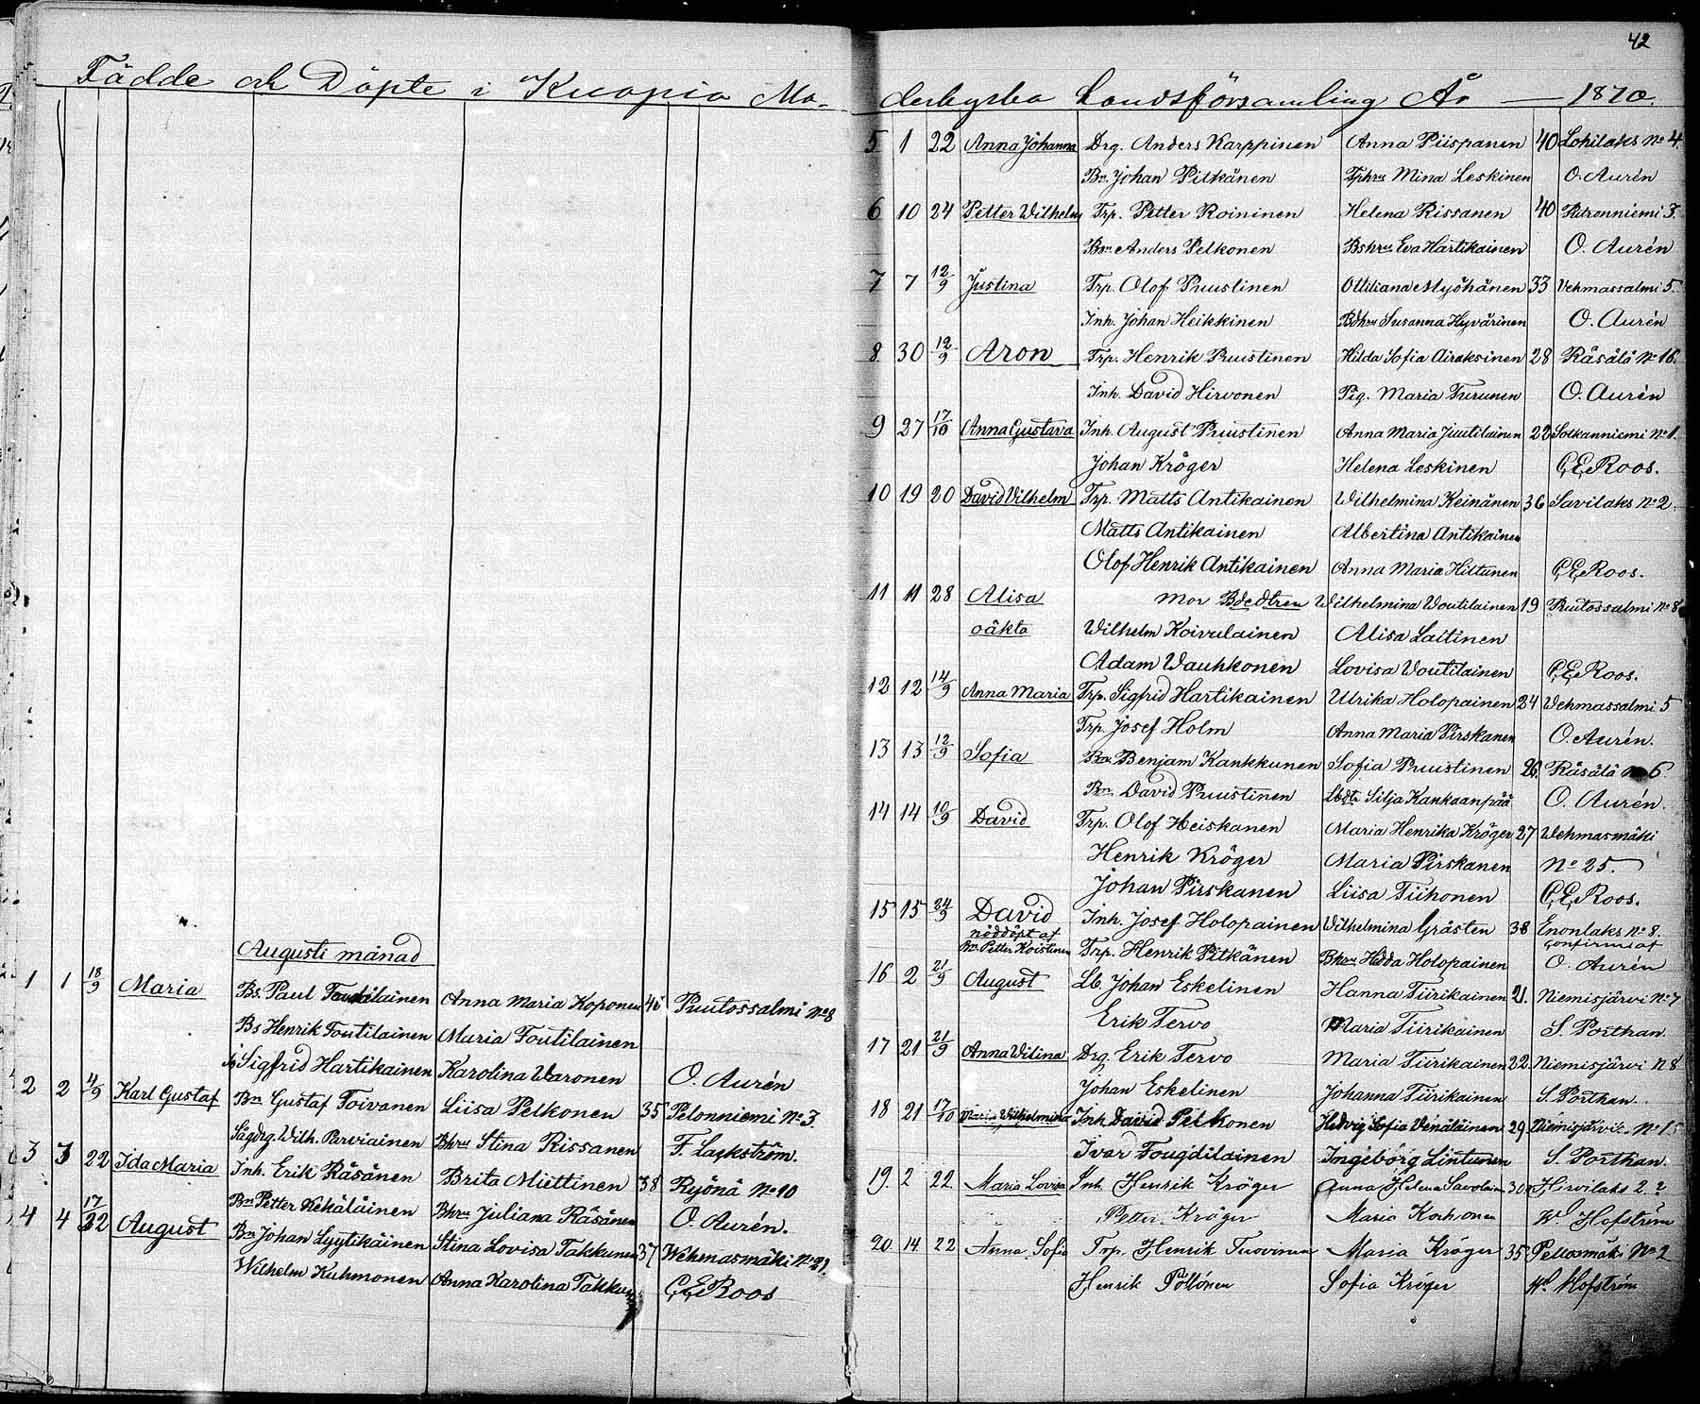 42
Födde och Döpte i Kuopio Mo-
derkyrko Landsförsamling År — 1870.
Augusti månad
1 1 18/9 Maria Bs. Paul Toutilainen Anna Maria Koponen 46 Puutossalmi No 8
Bs Henrik Toutilainen Maria Toutilainen
Sigfrid Hartikainen Karolina Waronen O. Aurén
2 2 4/9 Karl Gustaf Bn Gustaf Toivanen Liisa Pelkonen 35 Pelonniemi No 3.
Wilh. Parviainen Bhru Stina Rissanen F. Lackström.
3 3 22 Ida Maria Inh. Erik Räsänen Brita Miettinen 38 Ryönä No 10
Bn Petter Kekäläinen Bhru Juliana Räsänen O. Aurén.
4 4 17/22 August Bn Johan Lyytikäinen Stina Lovisa Takkunen 37 Wehmasmäki No
Wilhelm Kuhmonen Anna Karolina C. E. Roos
5 1 22 Anna Johanna Drg. Anders Karppinen Anna Piispanen 40 Lohilaks No 4.
Bn. Johan Pitkänen Mina Leskinen O. Aurén
6 10 24 Petter Wilhelm Trp. Petter Roininen Helena Rissanen 40 3.
Bn Anders Pelkonen Bshru Eva Hartikainen O. Aurén
7 7 12/9 Justina Trp. Olof Puustinen Ottiliana Myöhänen 33 Vehmassalmi 5.
Inh. Johan Heikkinen Bdhru Susanna Hyvärinen O. Aurén
8. 30 12/9 Aron Trp. Henrik Puustinen Hilda Sofia Airaksinen 28 Räsälä No 16.
Inh. David Hirvonen Pig. Maria Turunen O. Aurén
9 27 17/10 Anna Gustava Inh. August Puustinen Anna Maria Juutilainen 22 Sotkanniemi No 1.
Johan Kröger Helena Leskinen C. E. Roos.
10 19 20 David Vilhelm Trp. Matts Antikainen Wilhelmina Keinänen 36 Savilaks No 2.
Matts Antikainen Albertina Antikainen
Olof Henrik Antikainen Anna Maria Hiltunen C. E. Roos.
11 11 28 Alisa Mor Wilhelmina Woutilainen 19 Puutossalmi No 8
oäkta Wilhelm Koivulainen Alisa Laitinen
Adam Vauhkonen Lovisa Voutilainen C. E. Roos.
12 12 14/9 Anna Maria Trp. Sigfrid Hartikainen Ulrika Holopainen 24 Vehmassalmi 5
Trp. Josef Holm Anna Maria Pirskanen O. Aurén.
13 13 12/9 Sofia Bn Benjam Kankkunen Sofia Puustinen 26 Räsälä No 6.
Bn. David Puustinen Silja Kankaanpää O. Aurén.
14 14 10/9 David Trp. Olof Heiskanen Maria Henrika Kröger 27 Wehmasmäki
Henrik Kröger Maria Pirskanen No 25.
Johan Pirskanen Liisa Tiihonen C. E. Roos.
15 15 24/9 David Inh. Josef Holopainen Wilhelmina Grästen 38 Enonlaks No 8.
nöddöpt af confirmeraf
Bn. Petter Koistinen Trp. Henrik Pitkänen Bhru Hedda Holopainen O. Aurén
16 2 21/9 August Lb. Johan Eskelinen Hanna Tiirikainen 21. Niemisjärvi No 7
Erik Tervo Maria Tiirikainen S. Porthan.
17 21 21/9 Anna Vilina Drg. Erik Tervo Maria Tiirikainen 22. Niemisjärvi N 8
Johan Eskelinen Johanna Tiirikainen S. Porthan.
18 21 17/10 Maria Wilhelmina Inh. David Pelkonen Hedvig Sofia Venäläinen 29 Niemisjärvi No 15
Ivar Tougdilainen Ingeborg Lintunen S. Porthan.
19. 2 22 Maria Lovisa Inh. Henrik Kröger Anna Helena Savolain 30 Hirvilaks 2.
Petter Kröger Maria Korhonen W. Hofström
20. 14. 22 Anna Sofia Trp. Henrik Tuovinen Maria Kröger 35 Pellosmäki No 2
Henrik Pöllönen Sofia Kröger W. Hofström